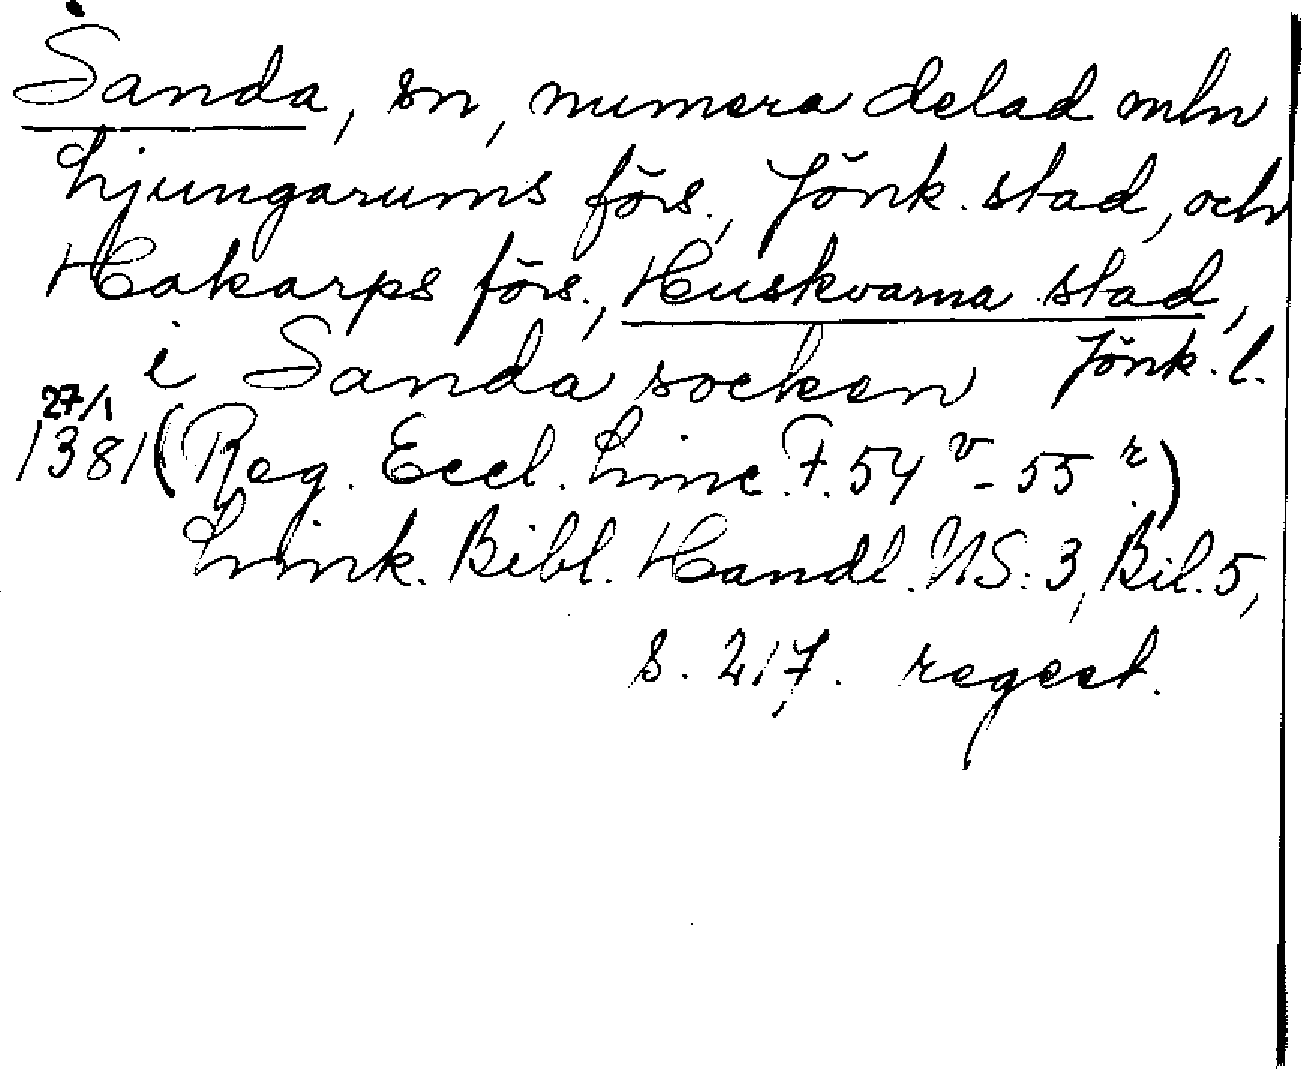 Sanda, sn, numera delad mln
Ljungarums förs., Jönk. stad, och
Hakarps förs., Huskvarna stad,
Jönk. l.
i Sanda socken
27/1
1381 (Reg. Eccl. Linc. F. 54 v - 55 r.)
Link. Bibl. Handl. NS: 3, Bil. 5,
s. 217. regest.